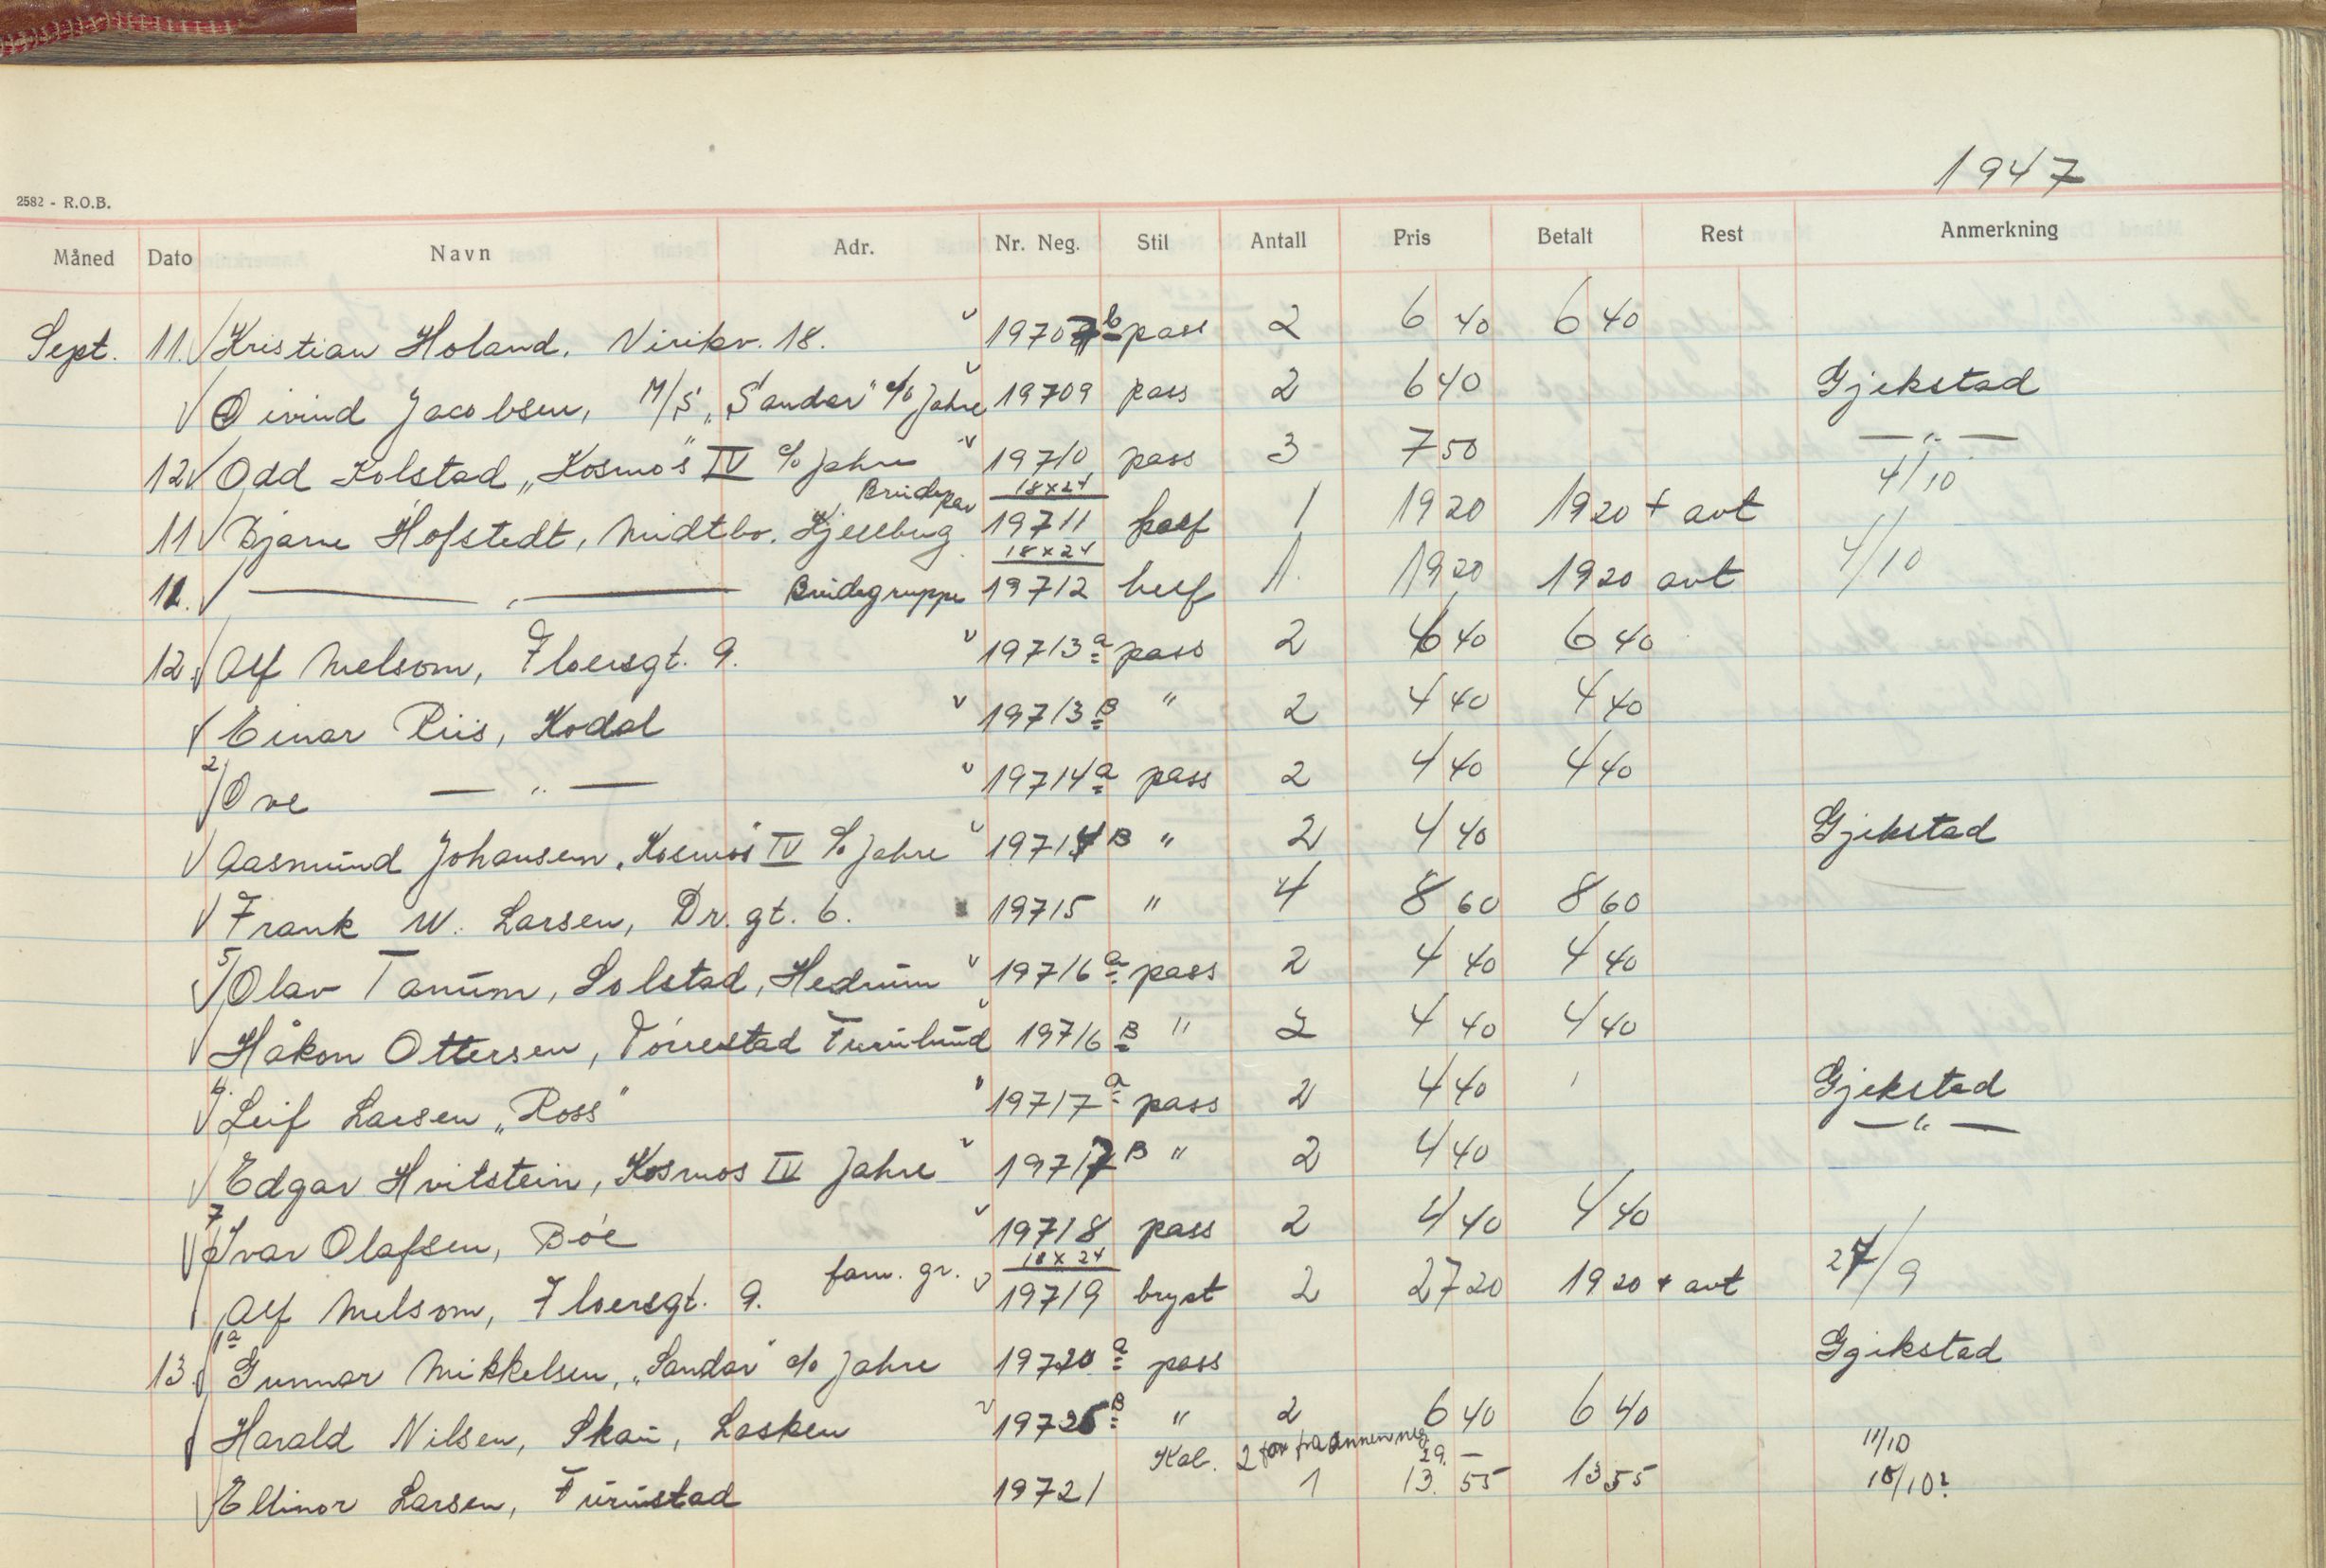 1947
2582 - R.O.B.
Måned Dato Navn Adr. Nr. Neg. Stil Antall Pris Betalt Rest Anmerkning
Sept. 11. Kristian Holand. Virikv. 18. 19707 b pass 2 6 40 6 40
Øivind Jacobsen, M/S „Sandar" c/o Jahre 19709 pass 2 6 40 Gjekstad
12 Odd Kolstad „Kosmos" IV c/o Jahre 19710 pass 3 7 50 — " —
Brudepar 18x24 4/10
11 Bjarne Hofstedt, Midtbv. Kjellberg 19711 half 1 19 20 19 20 + avt
18x24 4/10
11. — " — Brudegruppe 19712 helf 1 19 20 19 20 avt
12. Alf Melsom, Floersgt. 9. 19713 a pass 2 6 40 6 40
Einar Riis, Kodal 19713 B " 2 4 40 4 40
2) Ove — " — 19714 a pass 2 4 40 4 40
Aasmund Johansen „Kosmos" IV c/o Jahre 19714 B " 2 4 40 Gjekstad
Frank W. Larsen, Dr. gt. 6. 19715 " 4 8 60 8 60
5) Olav Tanum, Solstad, Hedrum 19716 a pass 2 4 40 4 40
Håkon Ottersen, Torrestad Furulund 19716 B " 2 4 40 4 40
Leif Larsen „Ross" 19717 a pass 2 4 40 Gjekstad
Edgar Hvitstein, Kosmos IV Jahre 19717 B " 2 4 40 — " —
7 Ivar Olafsen, Bøe 19718 pass 2 4 40 4 40
fam. gr. 18x24 27/9
Alf Melsom, Floersgt. 9. 19719 bryst 2 27 20 19 20 + avt
1a
13. Gunnar Mikkelsen, „Sandar" c/o Jahre 19720 a pass Gjekstad
Harald Nilsen, Skau, Lasken 19720 B " 2 6 40 6 40
Kab. 2 fra annen neg. 29. — 11/10
Ellinor Larsen, Furustad 19721 1 13. 55 13 55 18/10?